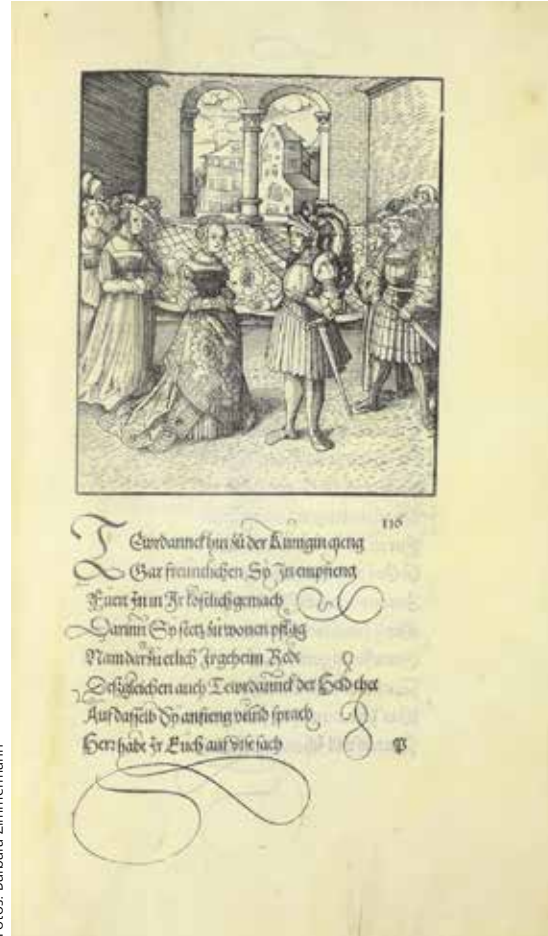 116
Tewrdannck hin zů der Kunigin gieng
Gar freuntlichen Sy Jn empfieng
Fuert Jn in Jr kostlich gemach
Darinn Sy stetz zů wonen pflag
Nam darzů etlich Jr geheim Rede
Desgleichen auch Tewrdannck der Held thet
Auf dasselb Sy anfieng vnnd sprach
Herr habt Jr Euch auf die sach
Fotos: Barbara Zimmermann